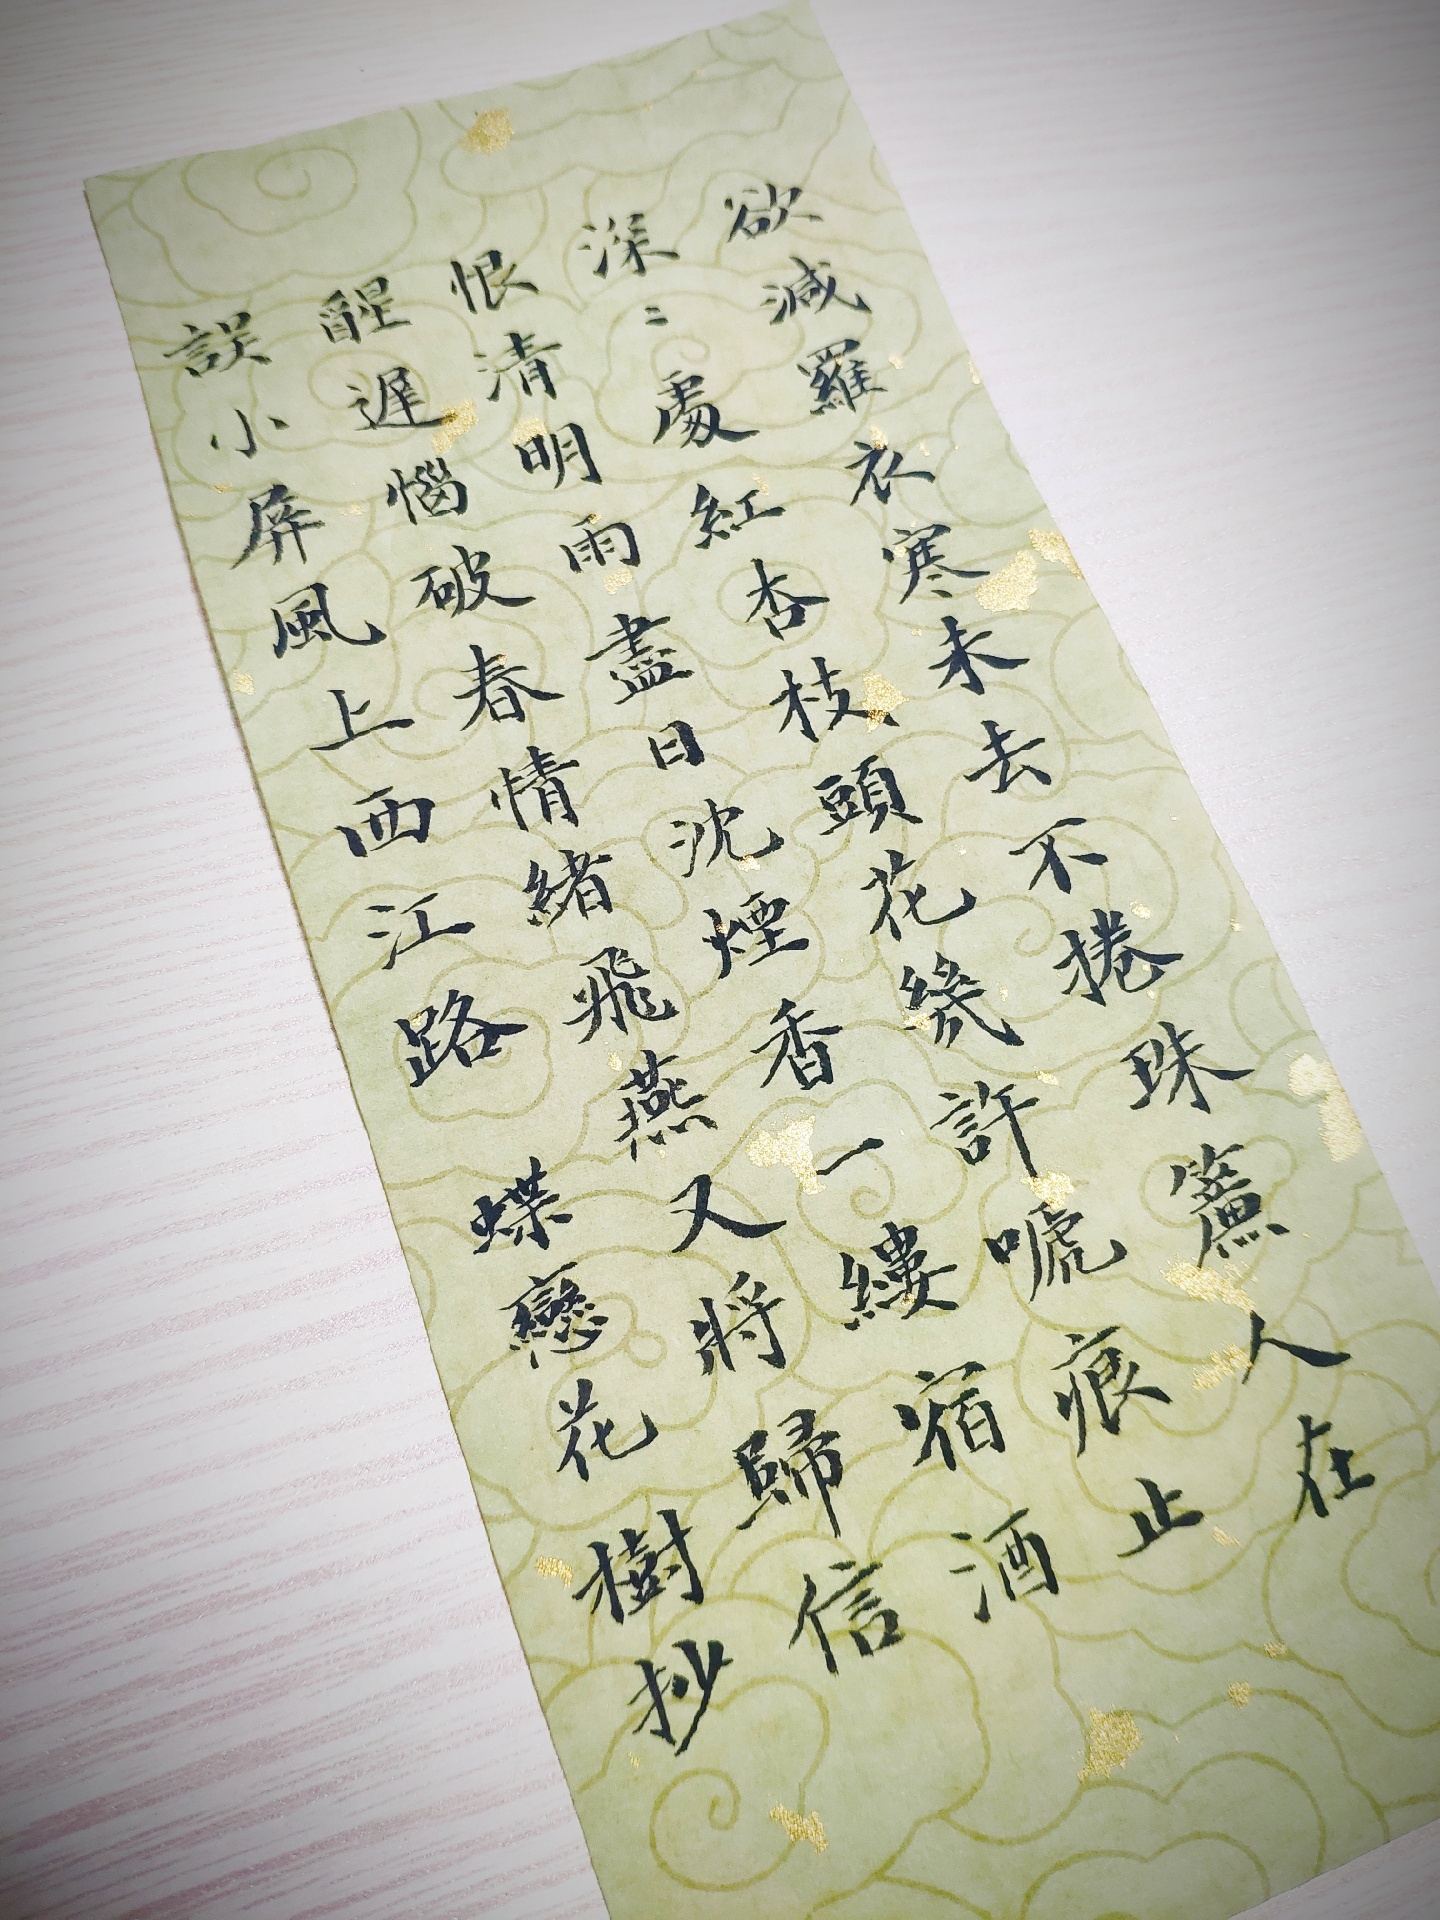 欲減羅衣寒未去不捲珠簾人在
深〻處紅杏枝頭花幾許嗁痕止
恨清明雨盡日沈煙香一縷宿酒
醒遲惱破春情緒飛燕又將歸信
誤小屏風上西江路 蝶戀花 樹抄